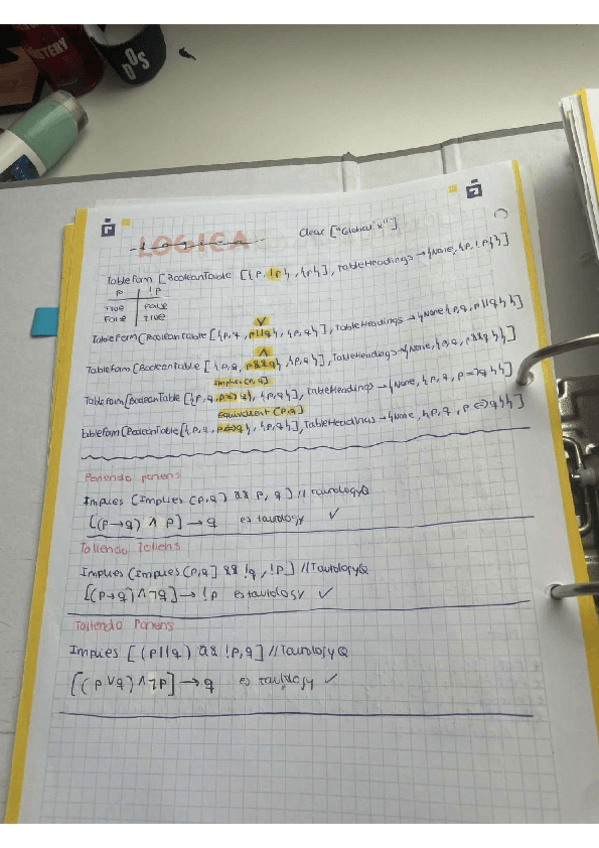 STERY
DOS
LOGICA
Clear ["Global`x"]
TableForm [BooleanTable [{p, !p}, {p}], TableHeadings → {None, {p, !p}}]
p !p
True False
False True
∨
TableForm [BooleanTable [{p, q, p||q}, {p, q}], TableHeadings → {None {p, q, p||q}}]
∧
TableForm [BooleanTable [{p, q, p&&q}, {p, q}], TableHeadings → {None, {p, q, p&&q}}]
Implies [p, q]
TableForm [BooleanTable [{p, q, p=>q}, {p, q}], TableHeadings → {None, {p, q, p=>q}}]
Equivalent [p, q]
TableForm [BooleanTable [{p, q, p<=>q}, {p, q}], TableHeadings → {None, {p, q, p<=>q}}]
Ponendo ponens
Implies [Implies [p, q] && p, q] // TautologyQ
[(p → q) ∧ p] → q es tautology ✓
Tollendo Tollens
Implies [Implies [p, q] && !q, !p] // TautologyQ
[(p → q) ∧ ¬q] → !p es tautology ✓
Tollendo Ponens
Implies [(p||q) && !p, q] // TautologyQ
[(p ∨ q) ∧ ¬p] → q es tautology ✓